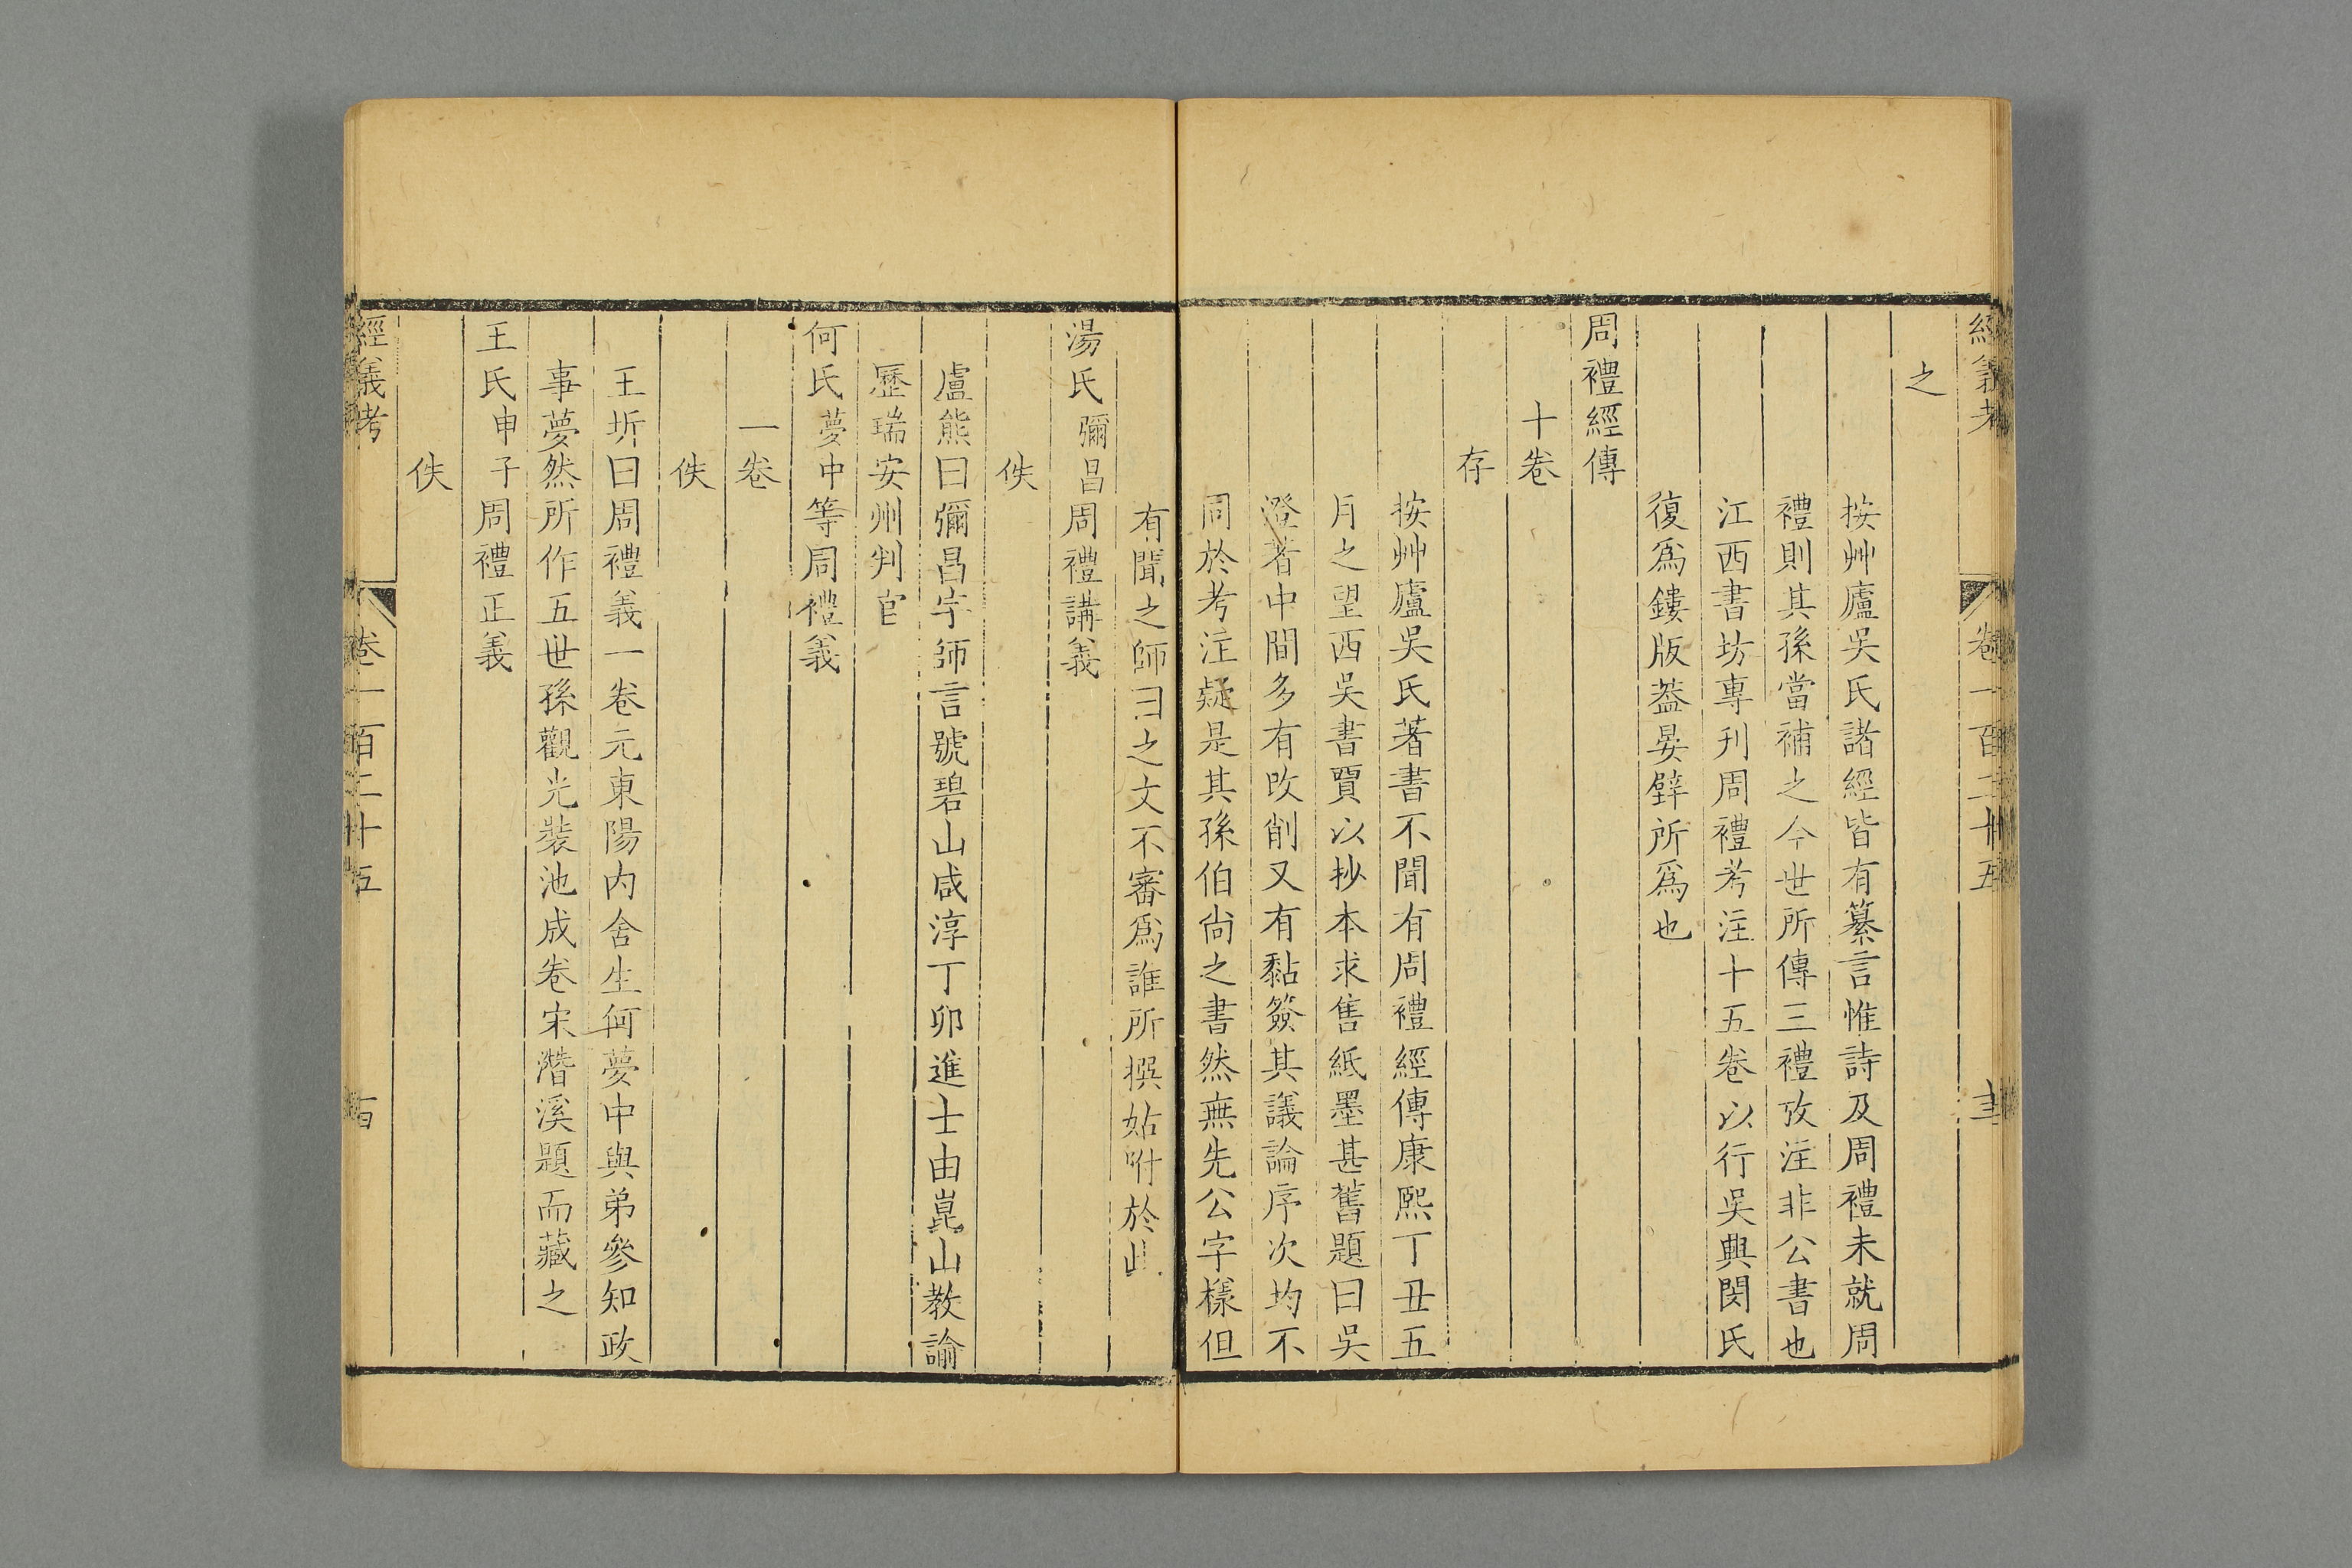 經義考 卷一百二十五
之
按艸廬吳氏諸經皆有纂言惟詩及周禮未就周
禮則其孫當補之今世所傳三禮攷注非公書也
江西書坊專刊周禮考注十五卷以行吳興閔氏
復爲鏤版葢晏璧所爲也
周禮經傳
十卷
存
按艸廬吳氏著書不聞有周禮經傳康熙丁丑五
月之望西吳書賈以抄本求售紙墨甚舊題曰吳
澄著中間多有改削又有黏簽其議論序次均不
同於考注疑是其孫伯尚之書然無先公字樣但
有聞之師曰之文不審爲誰所撰姑附於此
湯氏彌昌周禮講義
佚
盧熊曰彌昌字師言號碧山咸淳丁卯進士由崑山教諭
歷瑞安州判官
何氏夢中等周禮義
一卷
佚
王圻曰周禮義一卷元東陽内舍生何夢中與弟參知政
事夢然所作五世孫觀光裝池成卷宋濳溪題而藏之
王氏申子周禮正義
佚
經義考 卷一百二十五